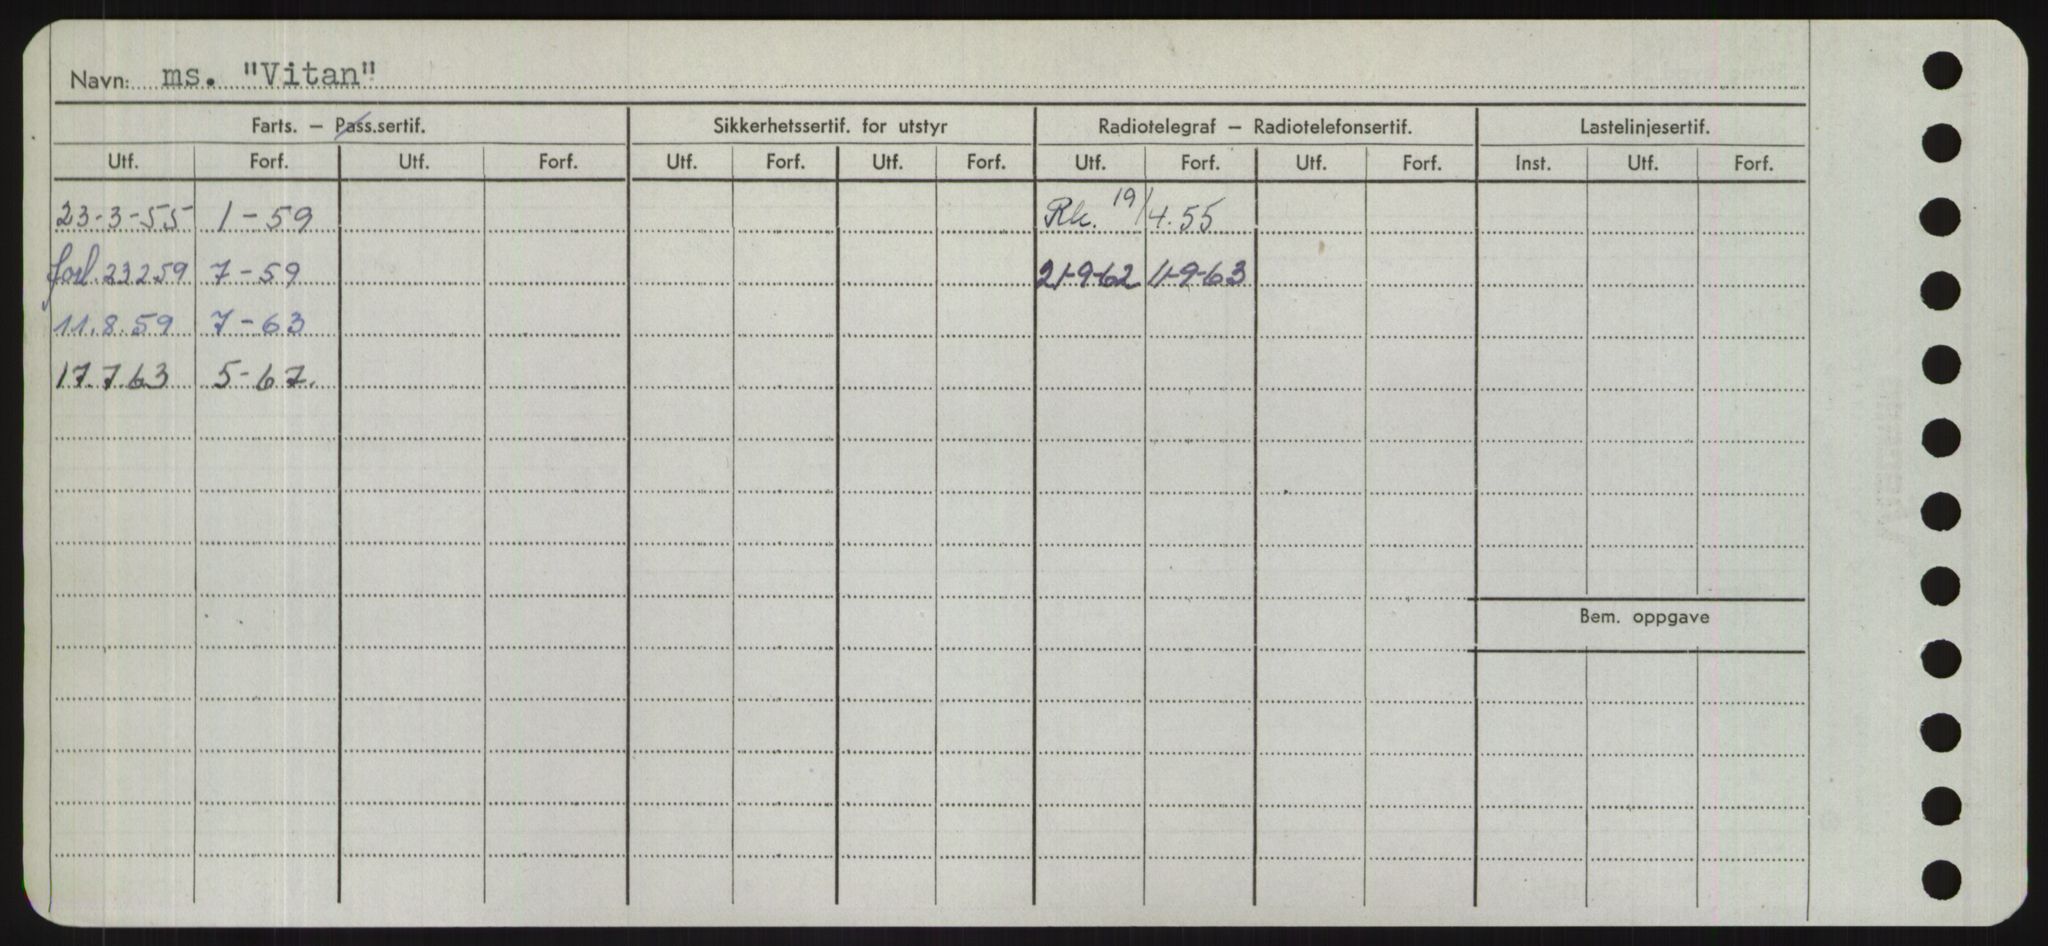 Navn: ms. "Vitan"
Farts. – Pass.sertif. Sikkerhetssertif. for utstyr Radiotelegraf – Radiotelefonsertif. Lastelinjesertif.
Utf. Forf. Utf. Forf. Utf. Forf. Utf. Forf. Utf. Forf. Utf. Forf. Inst. Utf. Forf.
23-3-55 1-59 Rk. 19/4.55
forl. 23259 7-59 21-9-62 11-9-63
11.8.59 7-63
17.7.63 5-67.
Bem. oppgave